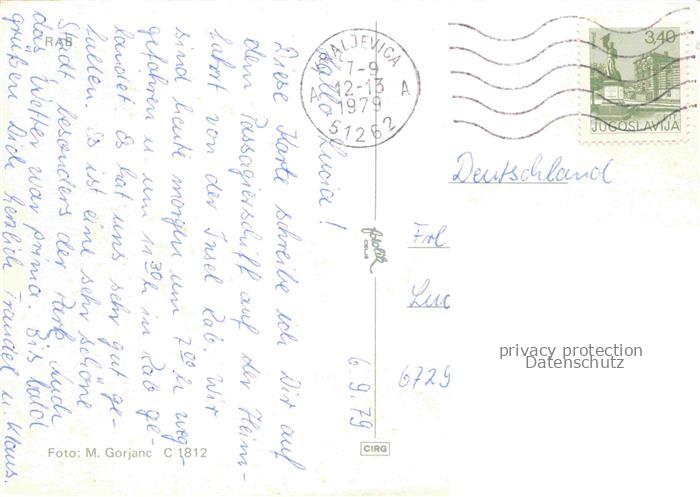 RAB
6.9.79
Hallo Lucia!
Diese Karte schreibe ich Dir auf
dem Passagierschiff auf der Heim-
fahrt von der Insel Rab. Wir
sind heute morgen um 7 00 h weg-
gefahren u. um 11 30 h in Rab ge-
landet. Es hat uns sehr gut ge-
fallen. Es ist eine sehr schöne
Stadt besonders der Park. Auch
das Wetter war prima. Bis bald
grüßen Dich herzlich Traudel u. Klaus.
Foto: M. Gorjanc C 1812
CIRG
7-9
12-13
1979
51262
A A
3,40
JUGOSLAVIJA
Deutschland
Frl
Luc
6729
privacy protection
Datenschutz